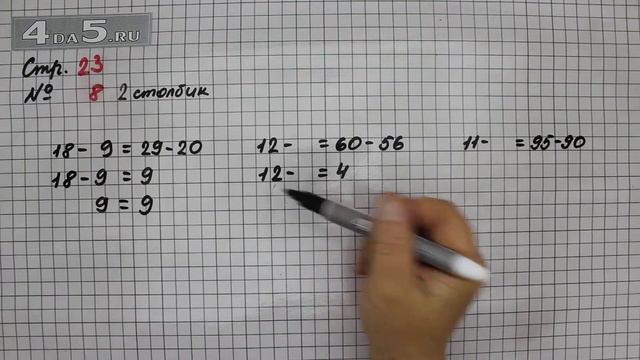 4DA5.RU
Стр. 23
№ 8 2 столбик
18 - 9 = 29 - 20
18 - 9 = 9
9 = 9
12 -   = 60 - 56
12 -   = 4
11 -   = 95 - 90